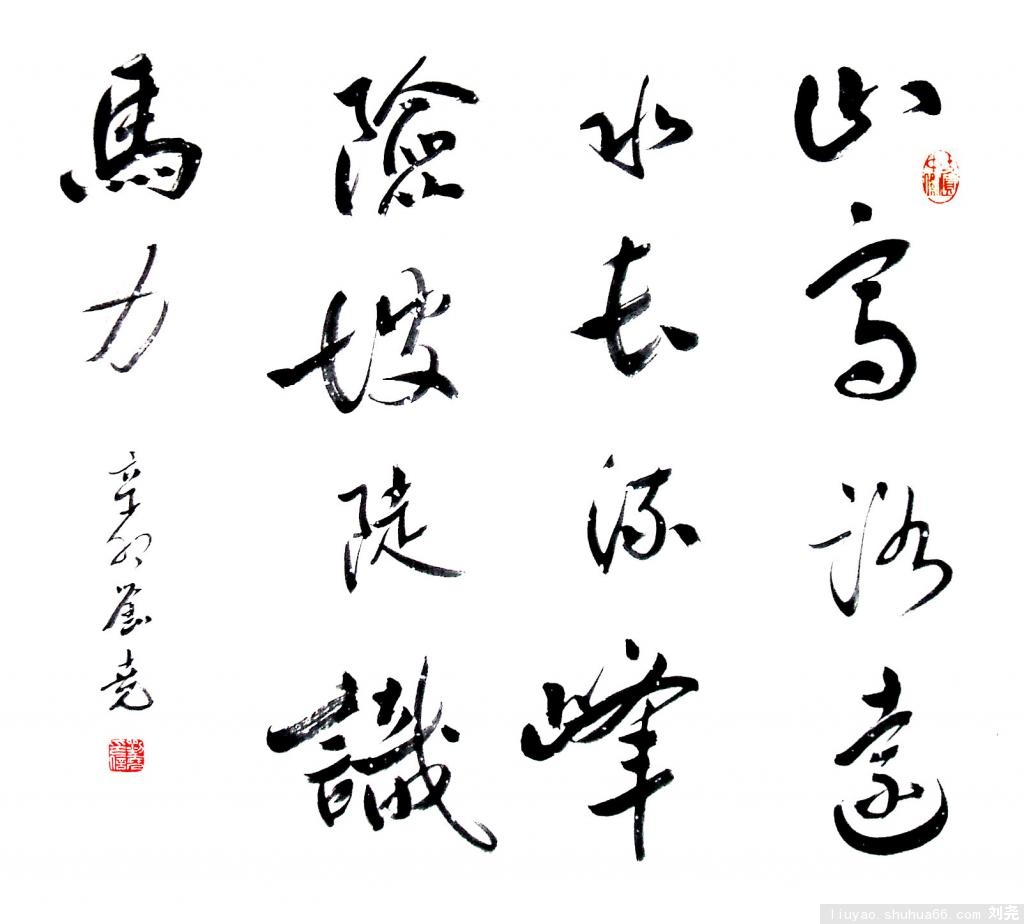 山高路遠
水長流峰
險坡陡識
馬力
辛卯劉堯
liuyao.shuhua66.com 刘尧